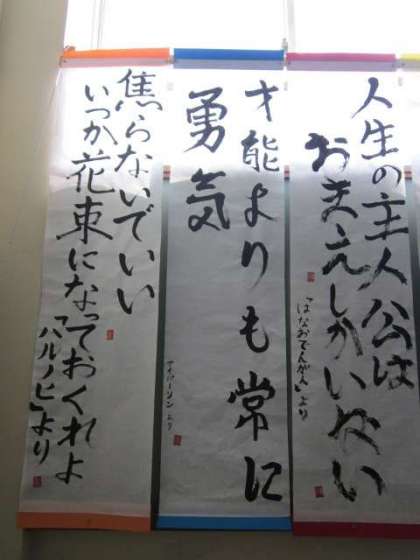 人生の主人公は
おまえしかいない
「はなおでんがん」より
才能よりも常に
勇気
より
焦らないでいい
いつか花束になっておくれよ
「ハルノヒ」より